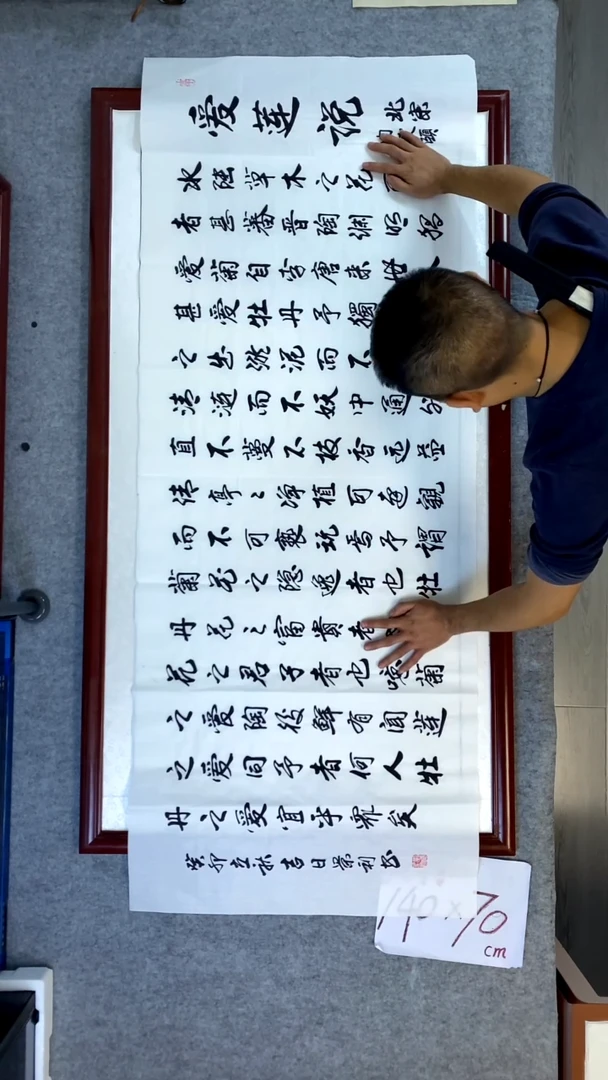 爱莲说
北宋
水陸草木之花可
者甚蕃晋陶渊明獨
爱菊自李唐来世人
甚爱牡丹予獨
之出淤泥而不
清涟而不妖中通外
直不蔓不枝香远益
清亭〻净植可远觀
而不可亵玩焉予谓
菊花之隐逸者也牡
丹花之富贵者
花之君子者也噫菊
之爱陶後鲜有闻莲
之爱同予者何人牡
丹之爱宜乎众矣
癸卯立秋吉日景利书
140×70
cm